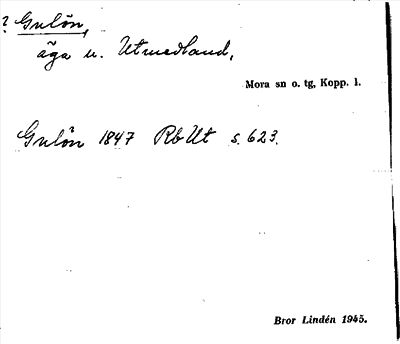 ? Gulön,
äga u. Utmedland,
Mora sn o. tg, Kopp. l.
Gulön 1847 Rb Ut s. 623.
Bror Lindén 1945.